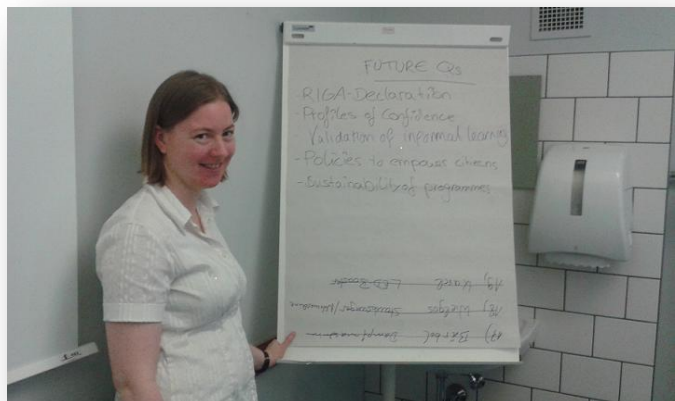 FUTURE Qs
- RIGA-Declaration
- Profiles of Confidence
Validation of informal learning
- Policies to empower citizens
- Sustainability of programmes
17) Bärbel
18)
19)